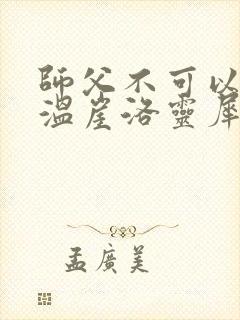 師父不可以
溫崖洛靈犀
孟廣美